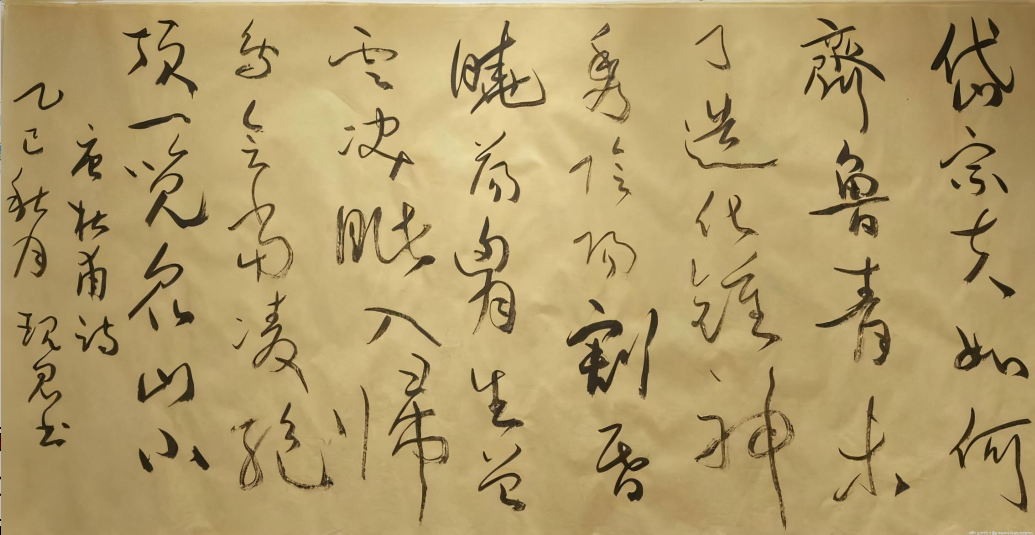 岱宗夫如何
齊魯青未
了造化鍾神
秀陰陽割昏
曉蕩胷生曾
雲決眦入歸
鳥會當凌絕
頂一覽眾山小
唐杜甫詩
乙巳秋月 书